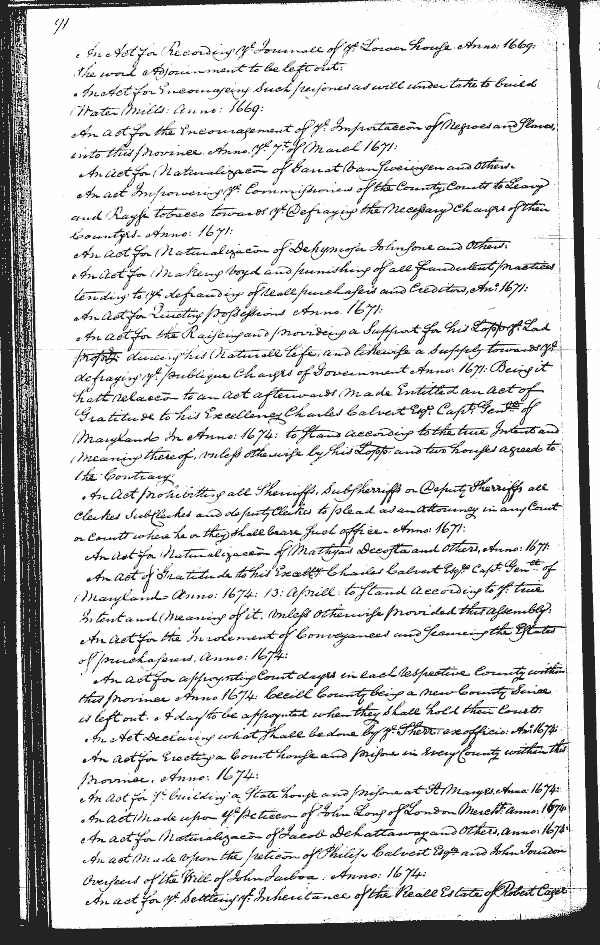 91
An Act for Recording ye Journall of ye Lower house Anno: 1669:
the word Adjournment to be left out:
An Act for Encourageing Such persones as will under take to build
Water Mills: Anno: 1669:
An act for the Encouragement of ye Importacon of Negroes and Slaves,
into this Province Anno. ye 7th of March 1671:
An act for Naturalizacon of Garrat Van Sweringen and Others.
An act Impowering ye Commissioners of the County Courts to Leavy
and Rayse tobacco towards ye Defraying the Necessary Charges of their
Countyes. Anno: 1671:
An Act for Naturalizacon of Johnsone and Others.
An Act for Makeing Voyd and punishing of all fraudulent practices
tending to ye defrauding of Reall purchasers and Creditors, Ano 1671:
An Act for Quieting possessions Anno: 1671:
An Act for the Raiseing and provideing a Support for his Lopp ye Lord
propry dureing his Naturall Life, and likewise a Supply towards ye
defraying ye publique Charges of Government Anno: 1671: Being it
hath relacon to an act afterwards Made Entitled an act of
Gratitude to his Excellency Charles Calvert Esqr. Capt. Genll of
Maryland In Anno: 1674: to Stand according to the true Intent and
Meaning thereof, unless otherwise by his Lopp and two houses agreed to
the Contrary
An Act prohibitting all Sherriffs, Subsherriffs or Deputy Sherriffs all
Clerkes SubClerkes and deputy Clerkes to plead as an Attorney in any Court
or Courts where he or they Shall beare Such office. Anno: 1671:
An act for Naturalizacon of Mathyas Decosta and Others, Anno: 1671:
An Act of Gratitude to his Excellcy Charles Calvert Esqr. Capt. Genll of
Maryland Anno: 1674: 13: Aprill: to Stand According to ye true
Intent and Meaning of it, Unless Otherwise provided this assembly.
An Act for the Inrolement of Conveyances and Secureing the Estates
of purchasers. Anno: 1674:
An act for appoynting Court dayes in each Respective County within
this Province Anno 1674: Cecill County being a new County Since
is left out. A day to be appoynted when they shall hold their Courts.
An Act Declaring what shall be done by ye Sherr: ex officio: Ano: 1674:
An Act for Erecting a Court house and prisone in Every County within this
Province. Anno: 1674:
An Act for ye building a State house and prisone at St Maryes Anno: 1674:
An Act Made upon ye peticon of John Long of London Mercht. anno: 1674
An act for Naturalizacon of Jacob Dehattaway and Others, anno: 1674
An act Made upon the peticon of Philip Calvert Esqr and John
Overseers of the Will of John Jarboe. Anno: 1674:
An Act for ye Settleing ye Inheritance of the Reall Estate of Robert Cager